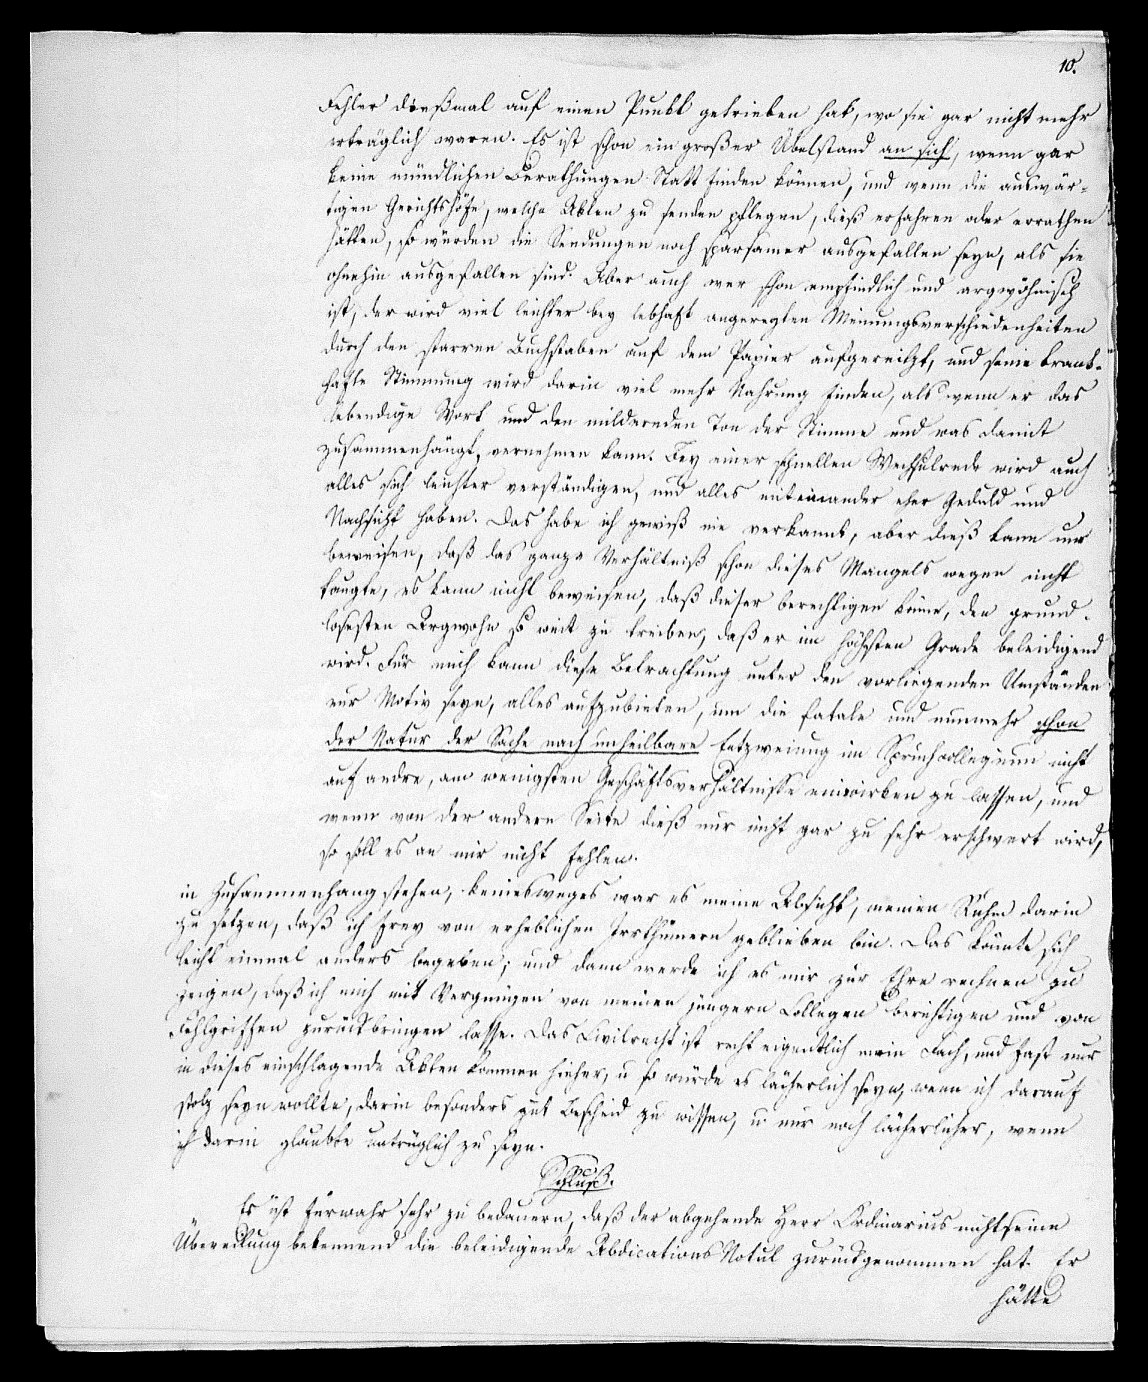 10.
Fehler dießmal auf einen Punkt getrieben hat, wo sie gar nicht mehr
erträglich waren. Es ist schon ein großer Übelstand an sich, wenn gar
keine mündlichen Berathungen Statt finden können, und wenn die auswär-
tigen Gerichtshöfe, welche Akten zu senden pflegen, dieß erfahren oder errathen
hätten, so würden die Sendungen noch sparsamer ausgefallen seyn, als sie
ohnehin ausgefallen sind. Aber auch wer schon empfindlich und argwöhnisch
ist, der wird viel leichter bey lebhaft angeregten Meinungsverschiedenheiten
durch den starren Buchstaben auf dem Papier aufgereitzt, und seine krank-
hafte Stimmung wird darin viel mehr Nahrung finden, als wenn er das
lebendige Wort und den mildernden Ton der Stimme und was damit
zusammenhängt, vernehmen kann. Bey einer schnellen Wechselrede wird auch
alles sich leichter verständigen, und alles miteinander eher Geduld und
Nachsicht haben. Das habe ich gewiß nie verkannt, aber dieß kann nur
beweisen, daß das ganze Verhältniß schon dieses Mangels wegen nicht
taugte, es kann nicht beweisen, daß dieser berechtigen könne, den grund-
losesten Argwohn so weit zu treiben, daß er im höchsten Grade beleidigend
wird. Für mich kann diese Betrachtung unter den vorliegenden Umständen
nur Motiv seyn, alles aufzubieten, um die fatale und nunmehr schon
der Natur der Sache nach unheilbare Entzweiung im Spruchcollegium nicht
auf andre, am wenigsten Geschäftsverhältnisse einwirken zu lassen, und
wenn von der andern Seite dieß nur nicht gar zu sehr erschwert wird,
so soll es an mir nicht fehlen.
in Zusammenhang stehen, keinesweges war es meine Absicht, meinen Ruhm darin
zu setzen, daß ich frey von erheblichen Irrthümern geblieben bin. Das könnte sich
leicht einmal anders begeben; und dann werde ich es mir zur Ehre rechnen zu
zeigen, daß ich mich mit Vergnügen von meinen jüngern Collegen berichtigen und von
Fehlgriffen zurückbringen lasse. Das Civilrecht ist recht eigentlich mein Fach, und fast nur
in dieses einschlagende Akten kommen hieher, u so würde es lächerlich seyn, wenn ich darauf
stolz seyn wollte, darin besonders gut Bescheid zu wissen, u. nur noch lächerlicher, wenn
ich darin glaubte untrüglich zu seyn.
Schluß.
Es ist fürwahr sehr zu bedauern, daß der abgehende Herr Ordinarius nicht seine
Übereilung bekennend die beleidigende Abdications Notul zurückgenommen hat. Er
hätte